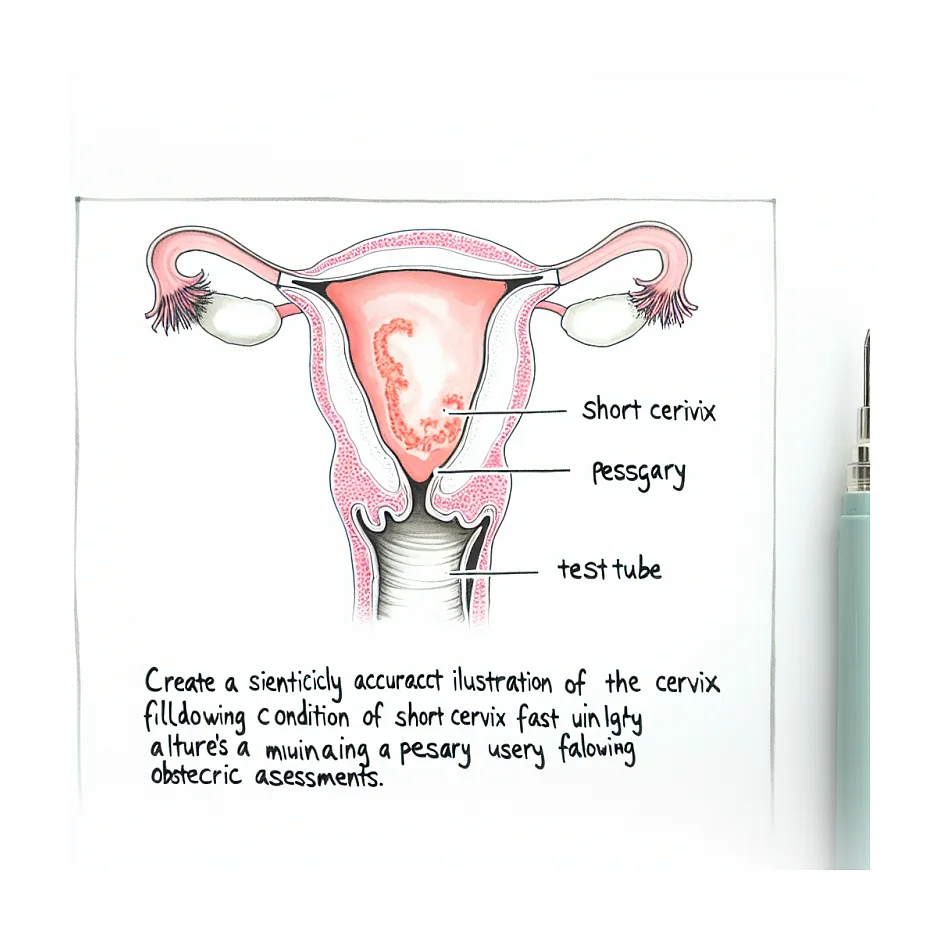 short cerivix
pessgary
test tube
Create a sienticicly accuracct ilustration of the cervix
filldowing condition of short cervix fast uin lgty
alture's a muinaing a pesary usery falowing
obstecric asessments.